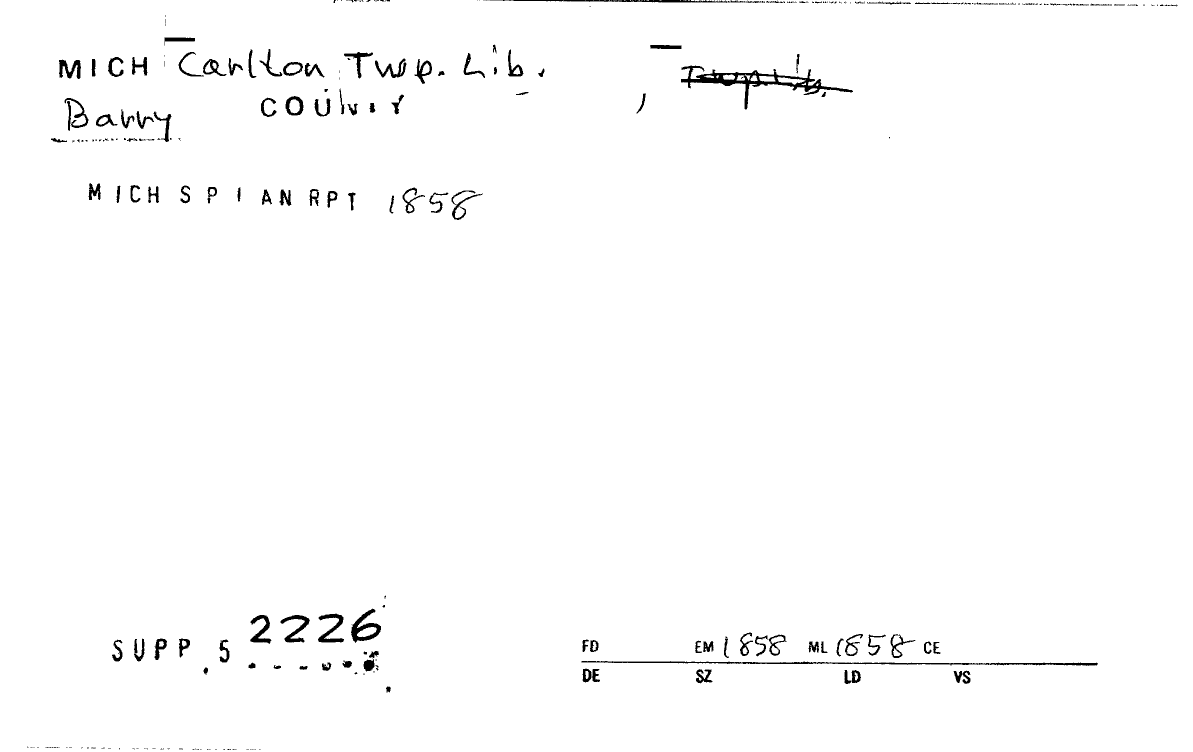 MICH Carlton Twp. Lib. , Twp Lib.
Barry COUNTY
MICH SPI AN RPT 1858
SUPP. 5 2226
FD EM 1858 ML 1858 CE
DE SZ LD VS